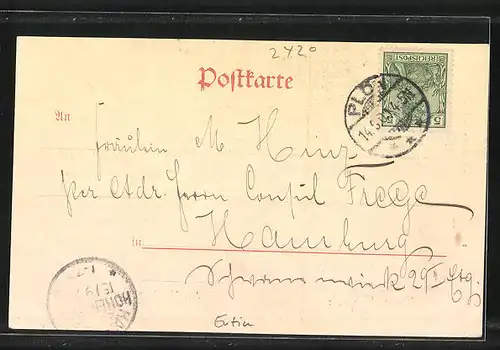 2420
Postkarte
REICHSPOST
5
PLÖN
14.5.
An
Fräulein M. Hinz
per Adr. Herrn Consul Frege
in Hamburg
Schwanenwieck 29 I Etg.
HOHEN